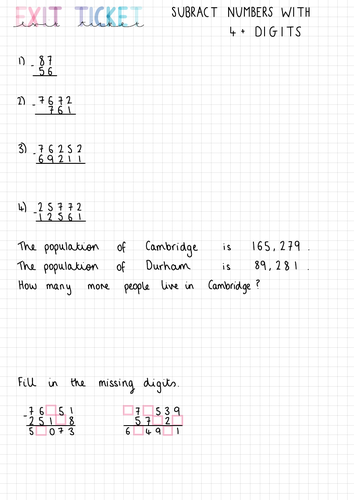 EXIT TICKET
exit ticket
SUBRACT NUMBERS WITH
4+ DIGITS
1) -87
56
2) -7672
761
3) -76252
69211
4) -25772
12561
The population of Cambridge is 165,279.
The population of Durham is 89,281.
How many more people live in Cambridge?
Fill in the missing digits.
-76□51
251□8
5□073
□7□539
57□2□
6□49□1